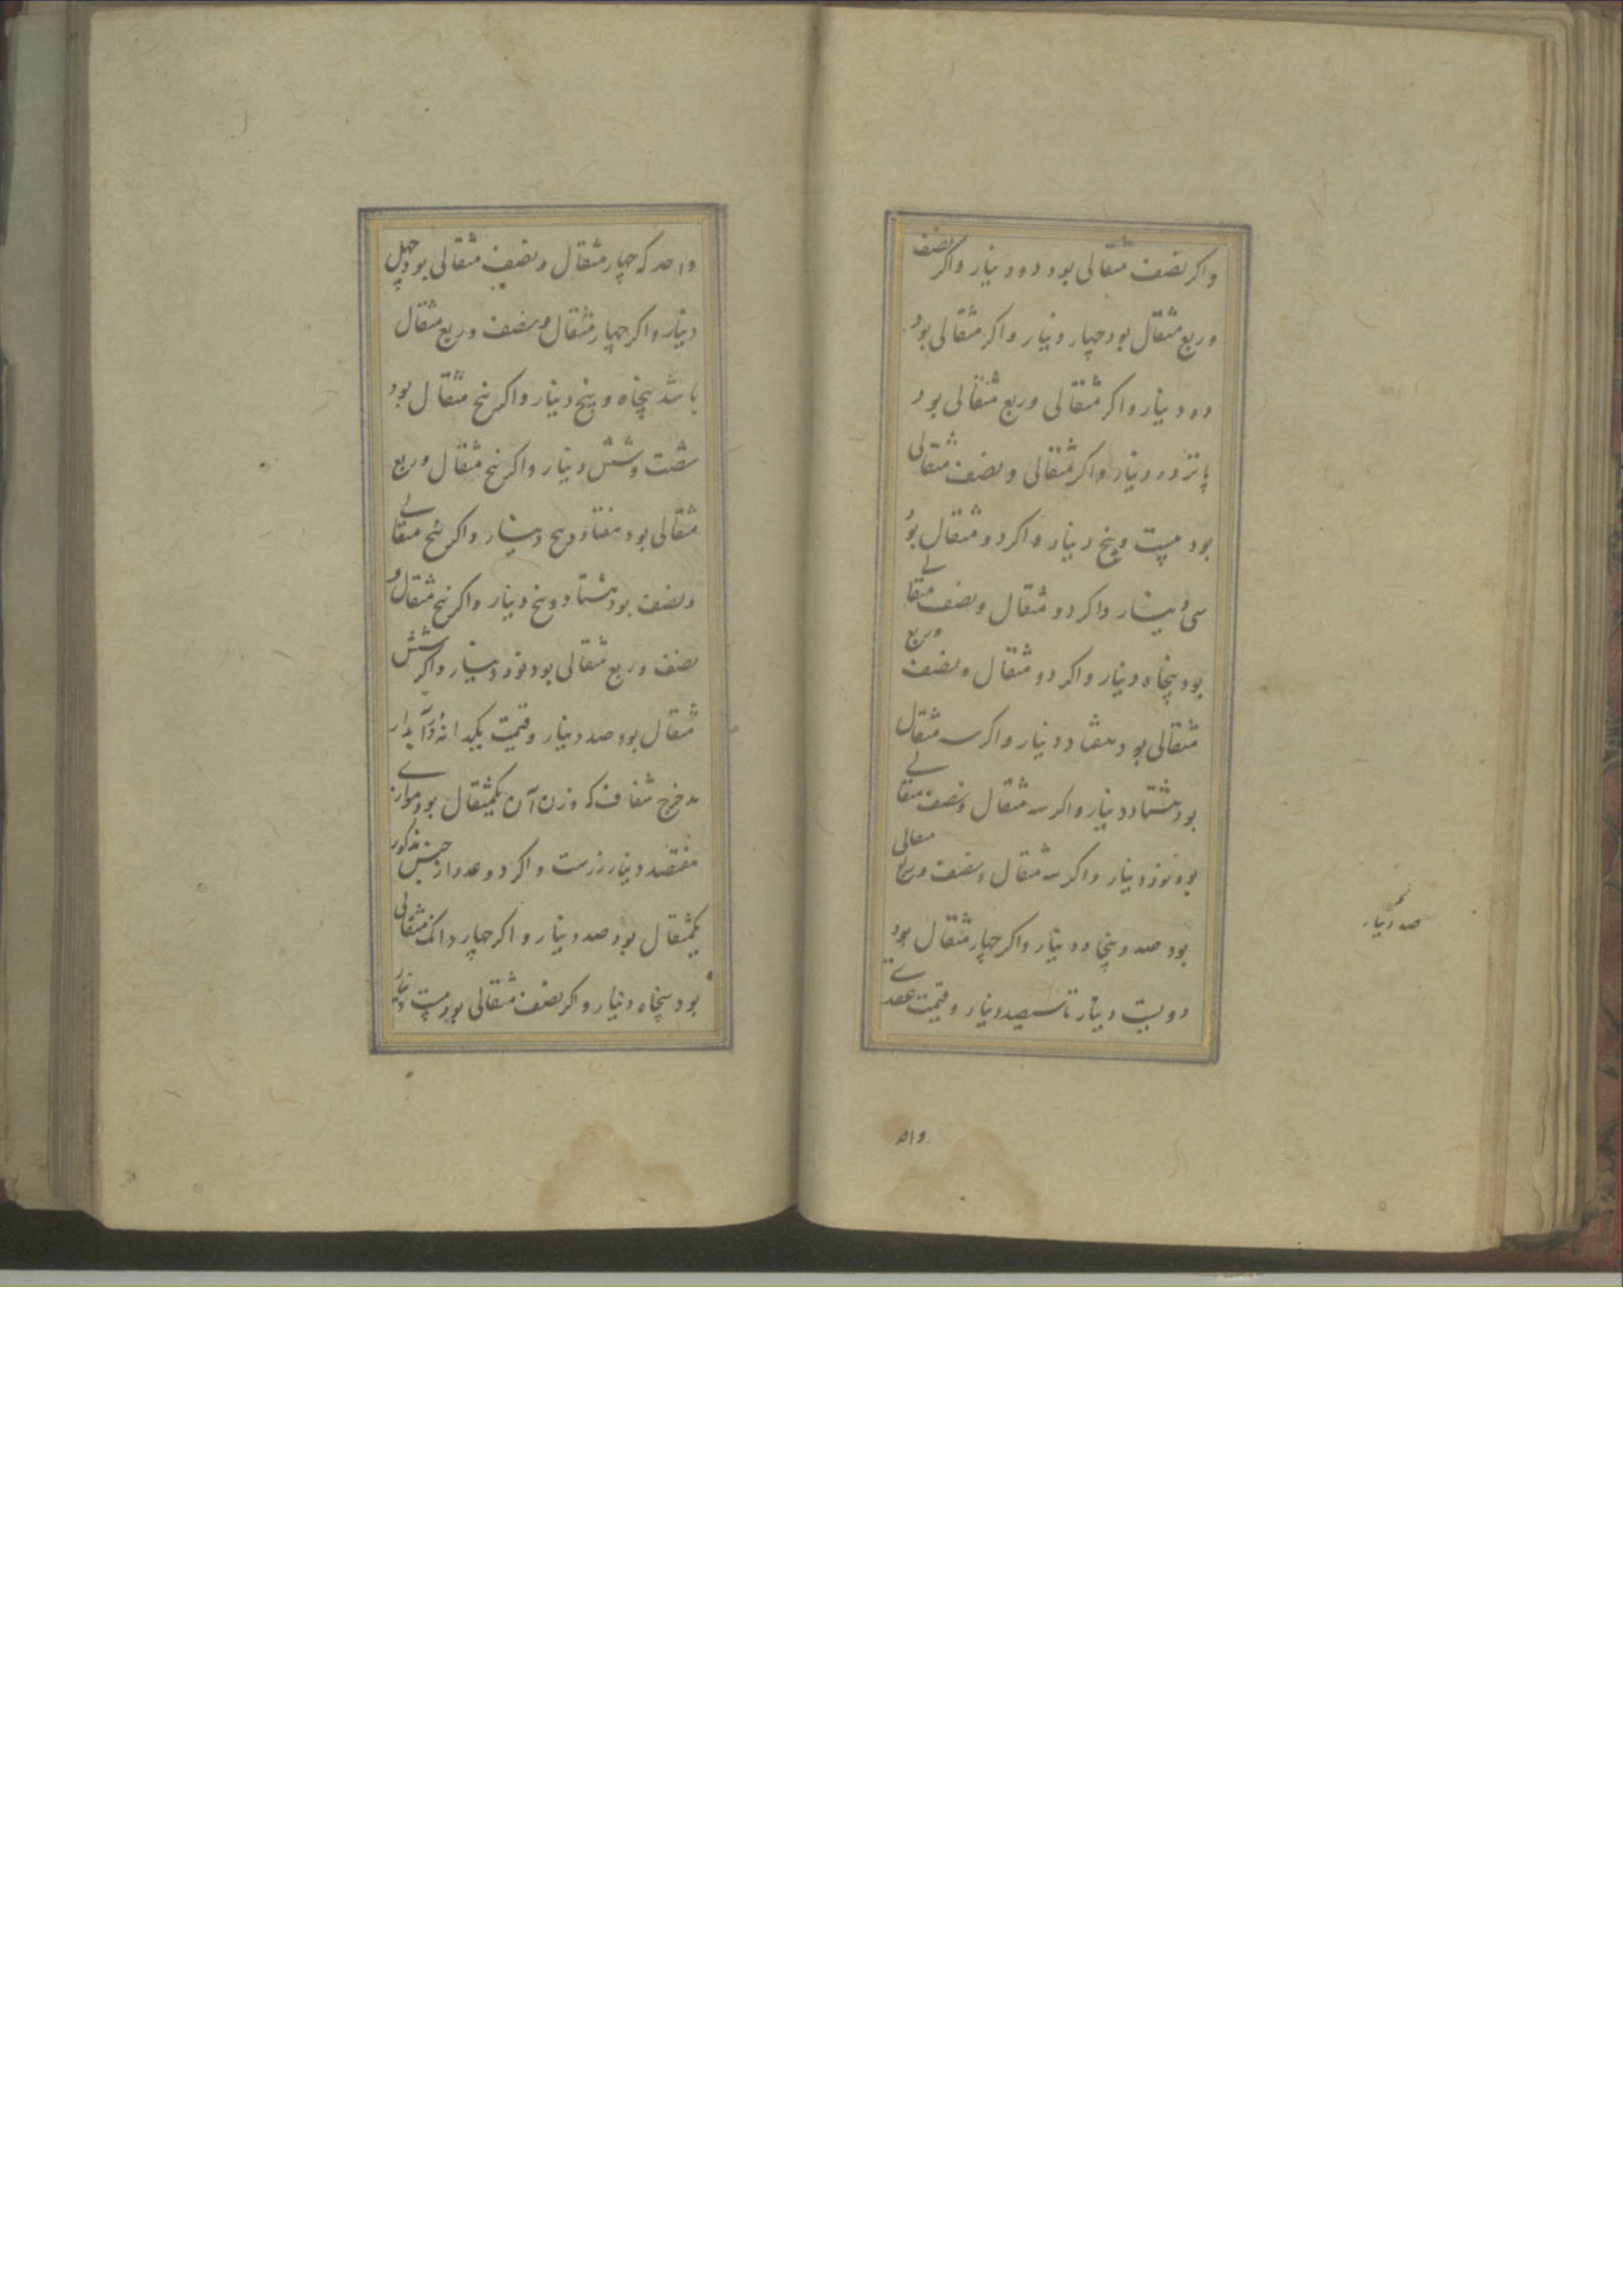 واکر نصف مثقالی بود دو دینار واکر نصف
وربع مثقال بود چهار دینار واکر مثقالی بود
ده دینار واکر مثقالی وربع مثقالی بود
پانزده دینار واکر مثقالی ونصف مثقالی
بود بیست وپنج دینار واکر دو مثقال بود
سی دینار واکر دو مثقال ونصف مثقالی
بود پنجاه دینار واکر دو مثقال ونصف وربع
مثقالی بود هفتاد دینار واکر سه مثقال
بود هشتاد دینار واکر سه مثقال ونصف مثقالی
بود نود دینار واکر سه مثقال ونصف وربع مثقالی
بود صد وپنجاه دینار واکر چهار مثقال بود
دویست دینار تا سیصد دینار وقیمت عقدی
صد دینار
واحد
واحد که چهار مثقال ونصف مثقالی بود چهل
دینار واکر چهار مثقال ونصف وربع مثقال
باشد پنجاه وپنج دینار واکر پنج مثقال بود
شصت وشش دینار واکر پنج مثقال وربع
مثقالی بود هفتاد وپنج دینار واکر پنج مثقالی
ونصف بود هشتاد وپنج دینار واکر پنج مثقال و
نصف وربع مثقالی بود نود دینار واکر شش
مثقال بود صد دینار وقیمت یکدانه در آبدار
مدحرج شفاف که وزن آن یکمثقال بود موازی
هفتصد دینار زرست واکر دو عدد از جنس مذکور
یکمثقال بود صد دینار واکر چهار دانک مثقالی
بود پنجاه دینار واکر نصف مثقالی بود بیست دینار